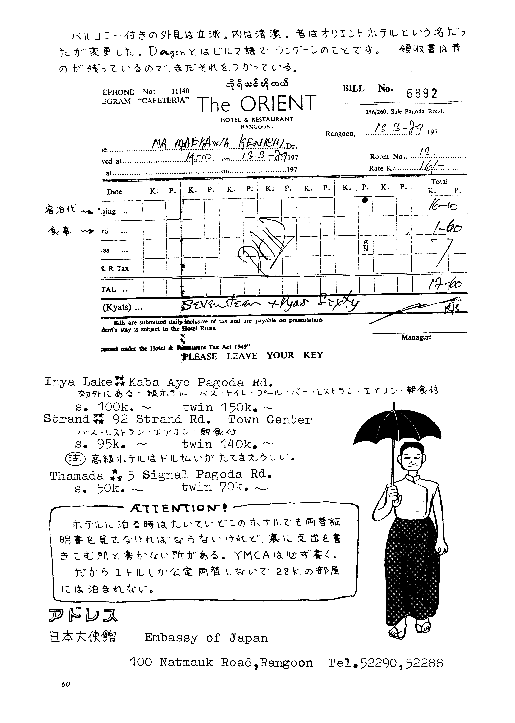 バルコニー付きの外見は立派。内は清潔。昔はオリエントホテルという名だっ
たが変更した。Dagonとはビルマ語でラングーンのことです。 領収書は昔
のが残っているので、まだそれをつかっている。
EPHONE No: 11140
EGRAM "CAFETERIA"
The ORIENT
HOTEL & RESTAURANT
RANGOON.
BILL No. 6892
256/260, Sule Pagoda Road,
Rangoon, 197
MR MAEKAWA KENICHI Dr.
ved at 197
at 197
Room No.
Rate K: 16/-
Date K. P. K. P. K. P. K. P. K. P. K. P. K. P. Total K. P.
宿泊代 → ging 16-00
食事 → 1-60
& R Tax
TAL 17-60
(Kyats) Seventeen + Kyas Sixty
Bills are submitted daily inclusive of tax and are payable on presentation
dent's stay is subject to the Hotel Rules.
Manager
under the Hotel & Restaurant Tax Act 1949"
PLEASE LEAVE YOUR KEY
Inya Lake Kaba Aye Pagoda Rd.
郊外にある・観光ホテル バス・トイレ・プール・バー・レストラン・エアコン・朝食付
s. 100k. 〜 twin 150k. 〜
Strand 92 Strand Rd. Town Center
バス・レストラン・エアコン 朝食付
s. 95k. 〜 twin 140k. 〜
注 高級ホテルはドル払いがたてまえらしい。
Thamada 5 Signal Pagoda Rd.
s. 50k. 〜 twin 70k. 〜
ATTENTION!
ホテルに泊る時はたいていどこのホテルでも両替証
明書を見せなければならないけれど、裏に支出を書
きこむ所と書かない所がある。YMCAは必ず書く。
だから1ドルしか公定両替しないで22k.の部屋
には泊まれない。
アドレス
日本大使館 Embassy of Japan
100 Natmauk Road,Rangoon Tel.52290,52288
60